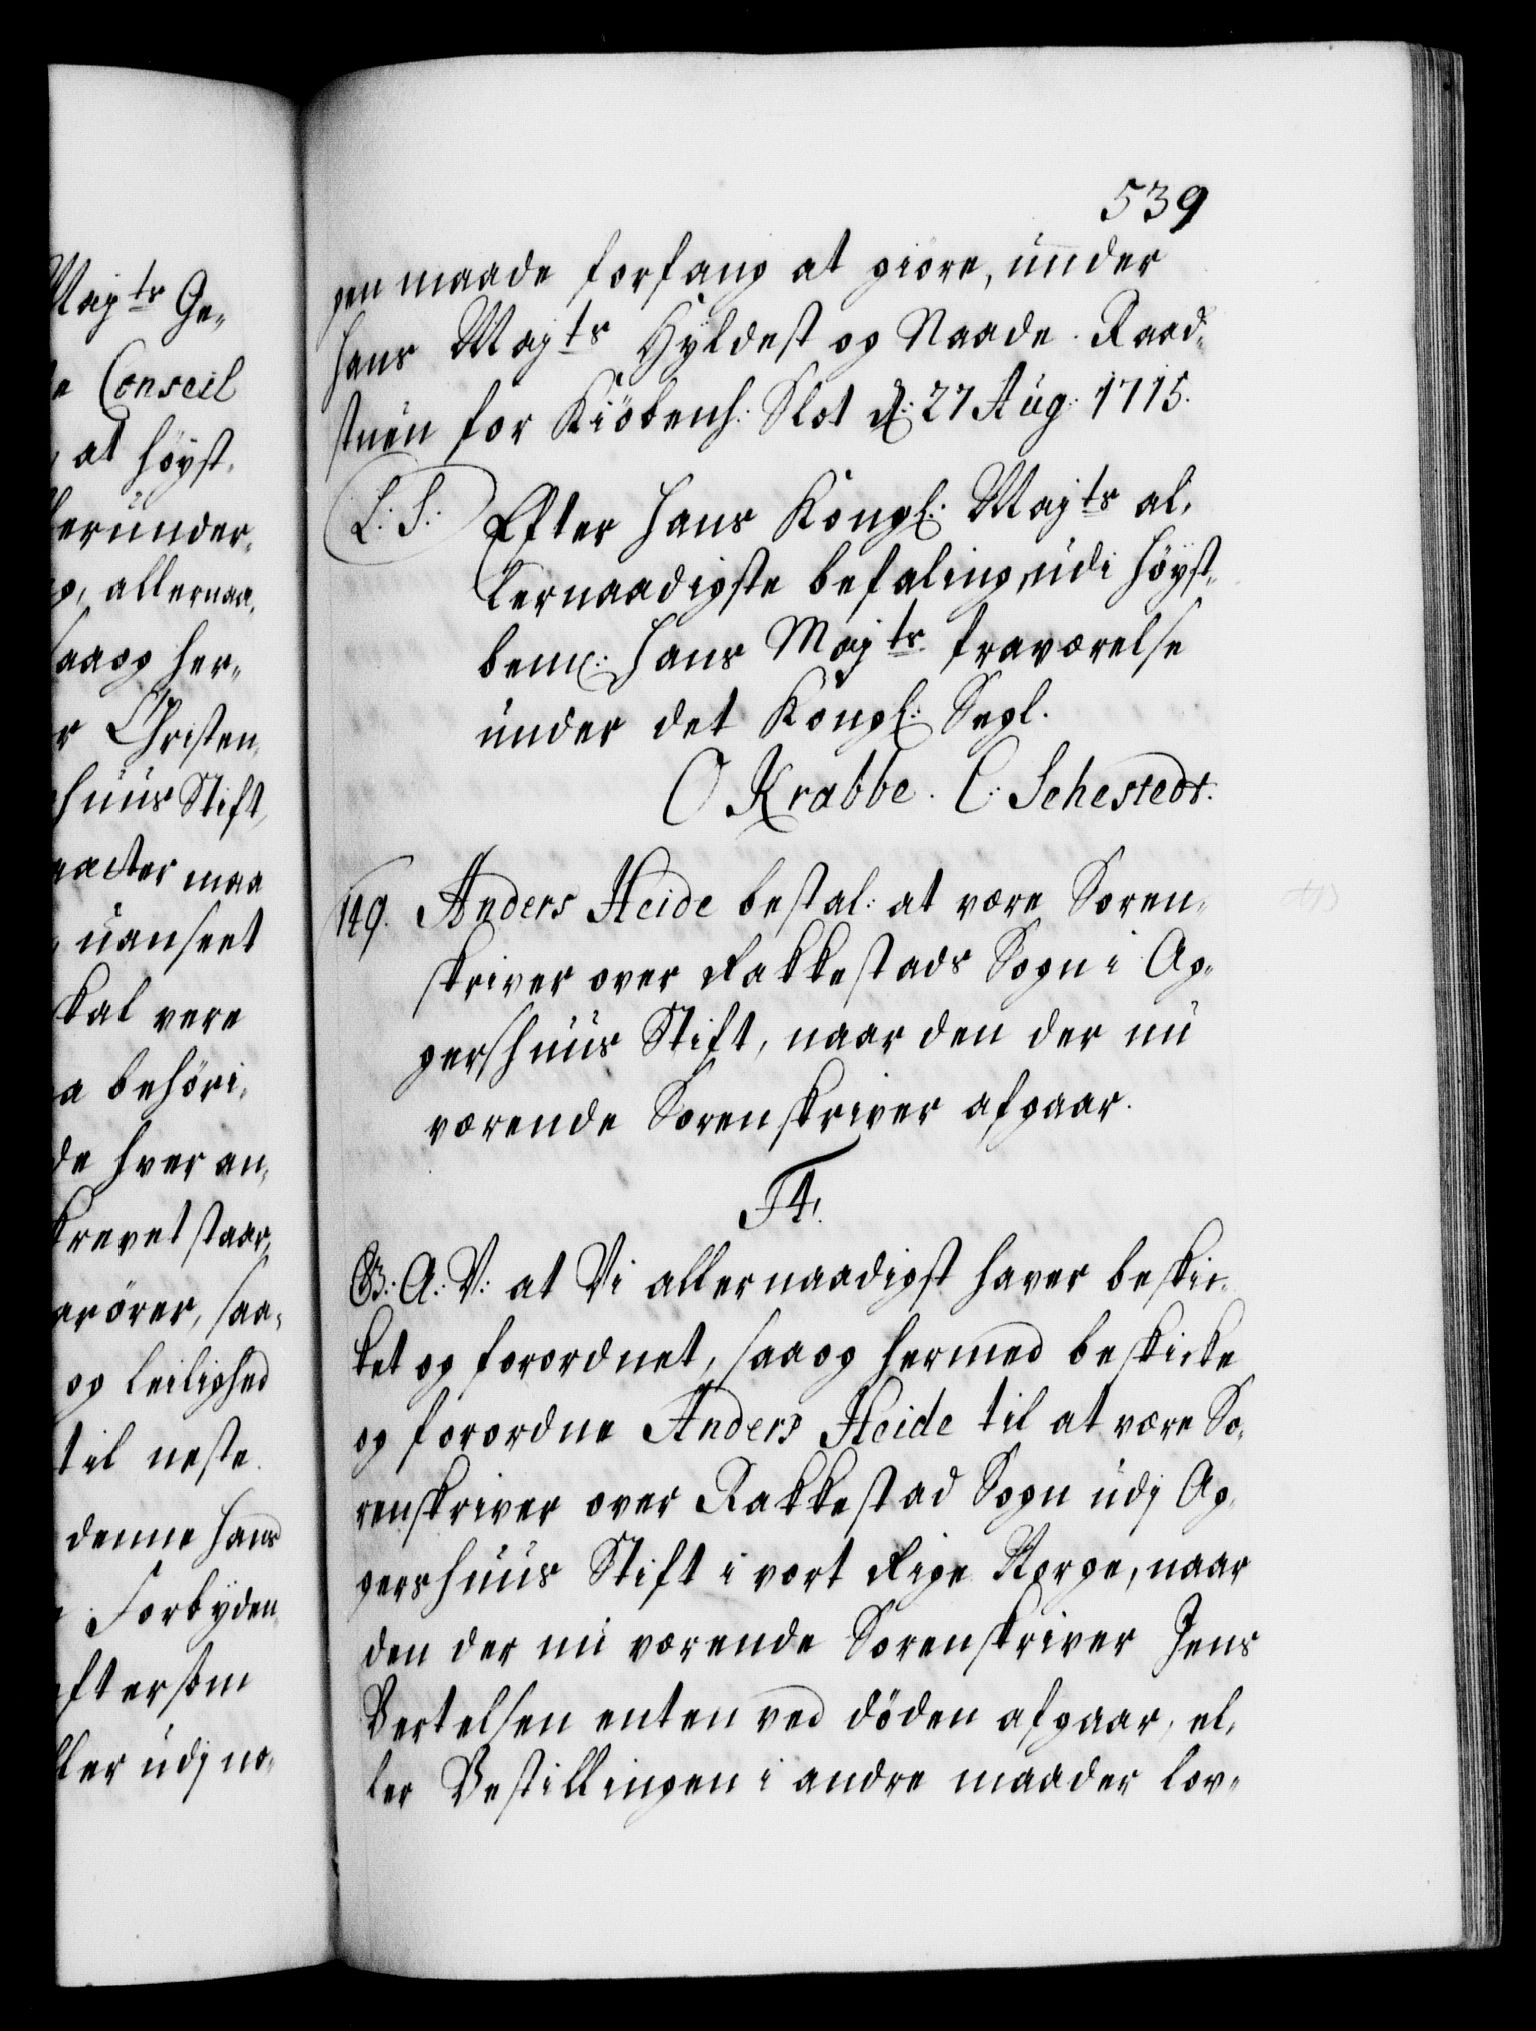 Mayts Ge-
e Conseil
at höyst-
lerunder-
g, allernaa-
saa og her-
r Christen-
huus Stift,
acter maa
uanseet
skal vere
a behöri-
de hver an-
krevet staar,
arörer, saa-
og leilighed
til neste.
denne hans
Forbyden-
eftersom
ller udj no-
539
gen maade forfang at giöre, under
Hans Mayts Hyldest og Naade. Raad-
stuen for Kiöbenh: Slot d: 27 Aug: 1715.
L: S: Efter Hans Kongl: Mayts al-
lernaadigste befaling, udi höyst-
bem: Hans Mayts fraværelse
under det Kongl: Segl.
O Krabbe. C: Sehestedt.
149. Anders Heide bestal: at være Soren-
skriver over Rakkestads Sogn i Ag-
gershuus Stift, naar den der nu
værende Sorenskriver afgaar.
F4.
G: A: V: at Vi allernaadigst haver beskic-
ket og forordnet, saa og hermed beskicke
og forordne Anders Heide til at være So-
renskriver over Rakkestad Sogn udj Ag-
gershuus Stift i vort Rige Norge, naar
den der nu værende Sorenskriver Jens
Bertelsen enten ved döden afgaar, el-
ler Bestillingen i andre maader lov-